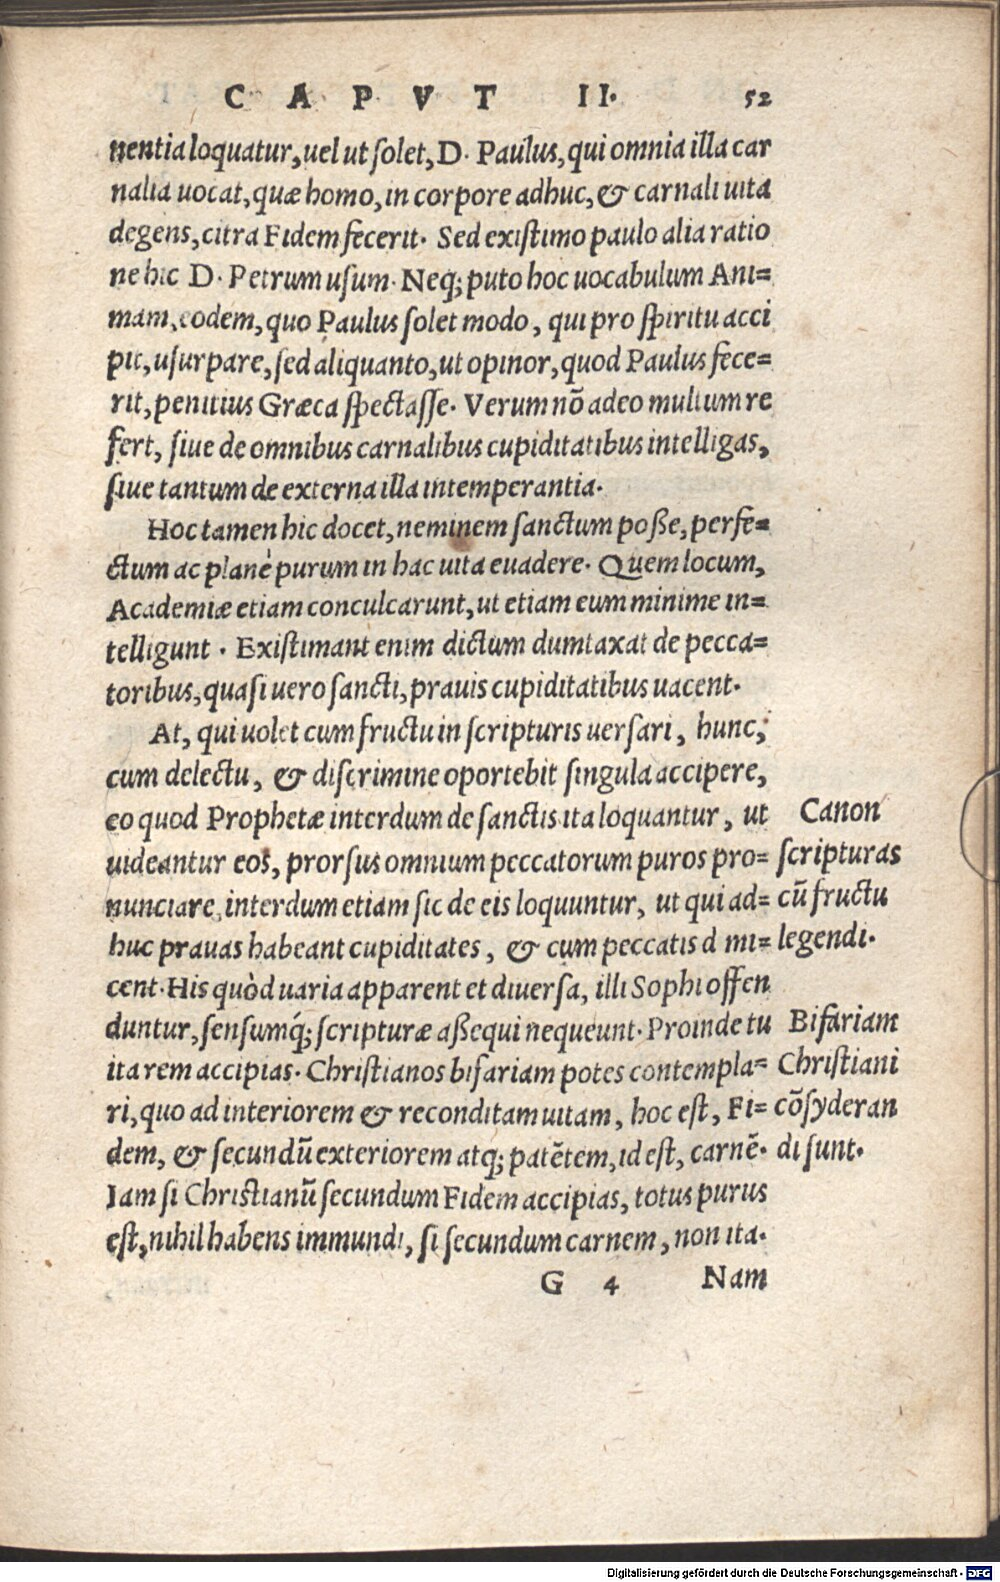 CAPVT II. 52
nentia loquatur, uel ut solet, D. Paulus, qui omnia illa car
nalia uocat, quæ homo, in corpore adhuc, & carnali uita
degens, citra Fidem fecerit. Sed existimo paulo alia ratio
ne hic D. Petrum usum. Neq; puto hoc uocabulum Ani=
mam, eodem, quo Paulus solet modo, qui pro spiritu acci
pit, usurpare, sed aliquanto, ut opinor, quod Paulus fece=
rit, penitius Græca spectasse. Verum nõ adeo multum re
fert, siue de omnibus carnalibus cupiditatibus intelligas,
siue tantum de externa illa intemperantia.
Hoc tamen hic docet, neminem sanctum poße, perfe=
ctum ac planè purum in hac uita euadere. Quem locum,
Academiæ etiam conculcarunt, ut etiam eum minime in=
telligunt. Existimant enim dictum dumtaxat de pecca=
toribus, quasi uero sancti, prauis cupiditatibus uacent.
At, qui uolet cum fructu in scripturis uersari, hunc,
cum delectu, & discrimine oportebit singula accipere,
eo quod Prophetæ interdum de sanctis ita loquantur, ut
uideantur eos, prorsus omnium peccatorum puros pro=
nunciare, interdum etiam sic de eis loquuntur, ut qui ad=
huc prauas habeant cupiditates, & cum peccatis d mi=
cent. His quòd uaria apparent et diuersa, illi Sophi offen
duntur, sensumq́; scripturæ aßequi nequeunt. Proinde tu
ita rem accipias. Christianos bifariam potes contempla=
ri, quo ad interiorem & reconditam uitam, hoc est, Fi=
dem, & secundũ exteriorem atq; patẽtem, id est, carnẽ.
Iam si Christianũ secundum Fidem accipias, totus purus
est, nihil habens immundi, si secundum carnem, non ita.
G 4 Nam
Canon
scripturas
cũ fructu
legendi.
Bifariam
Christiani
cõsyderan
di sunt.
Digitalisierung gefördert durch die Deutsche Forschungsgemeinschaft - DFG